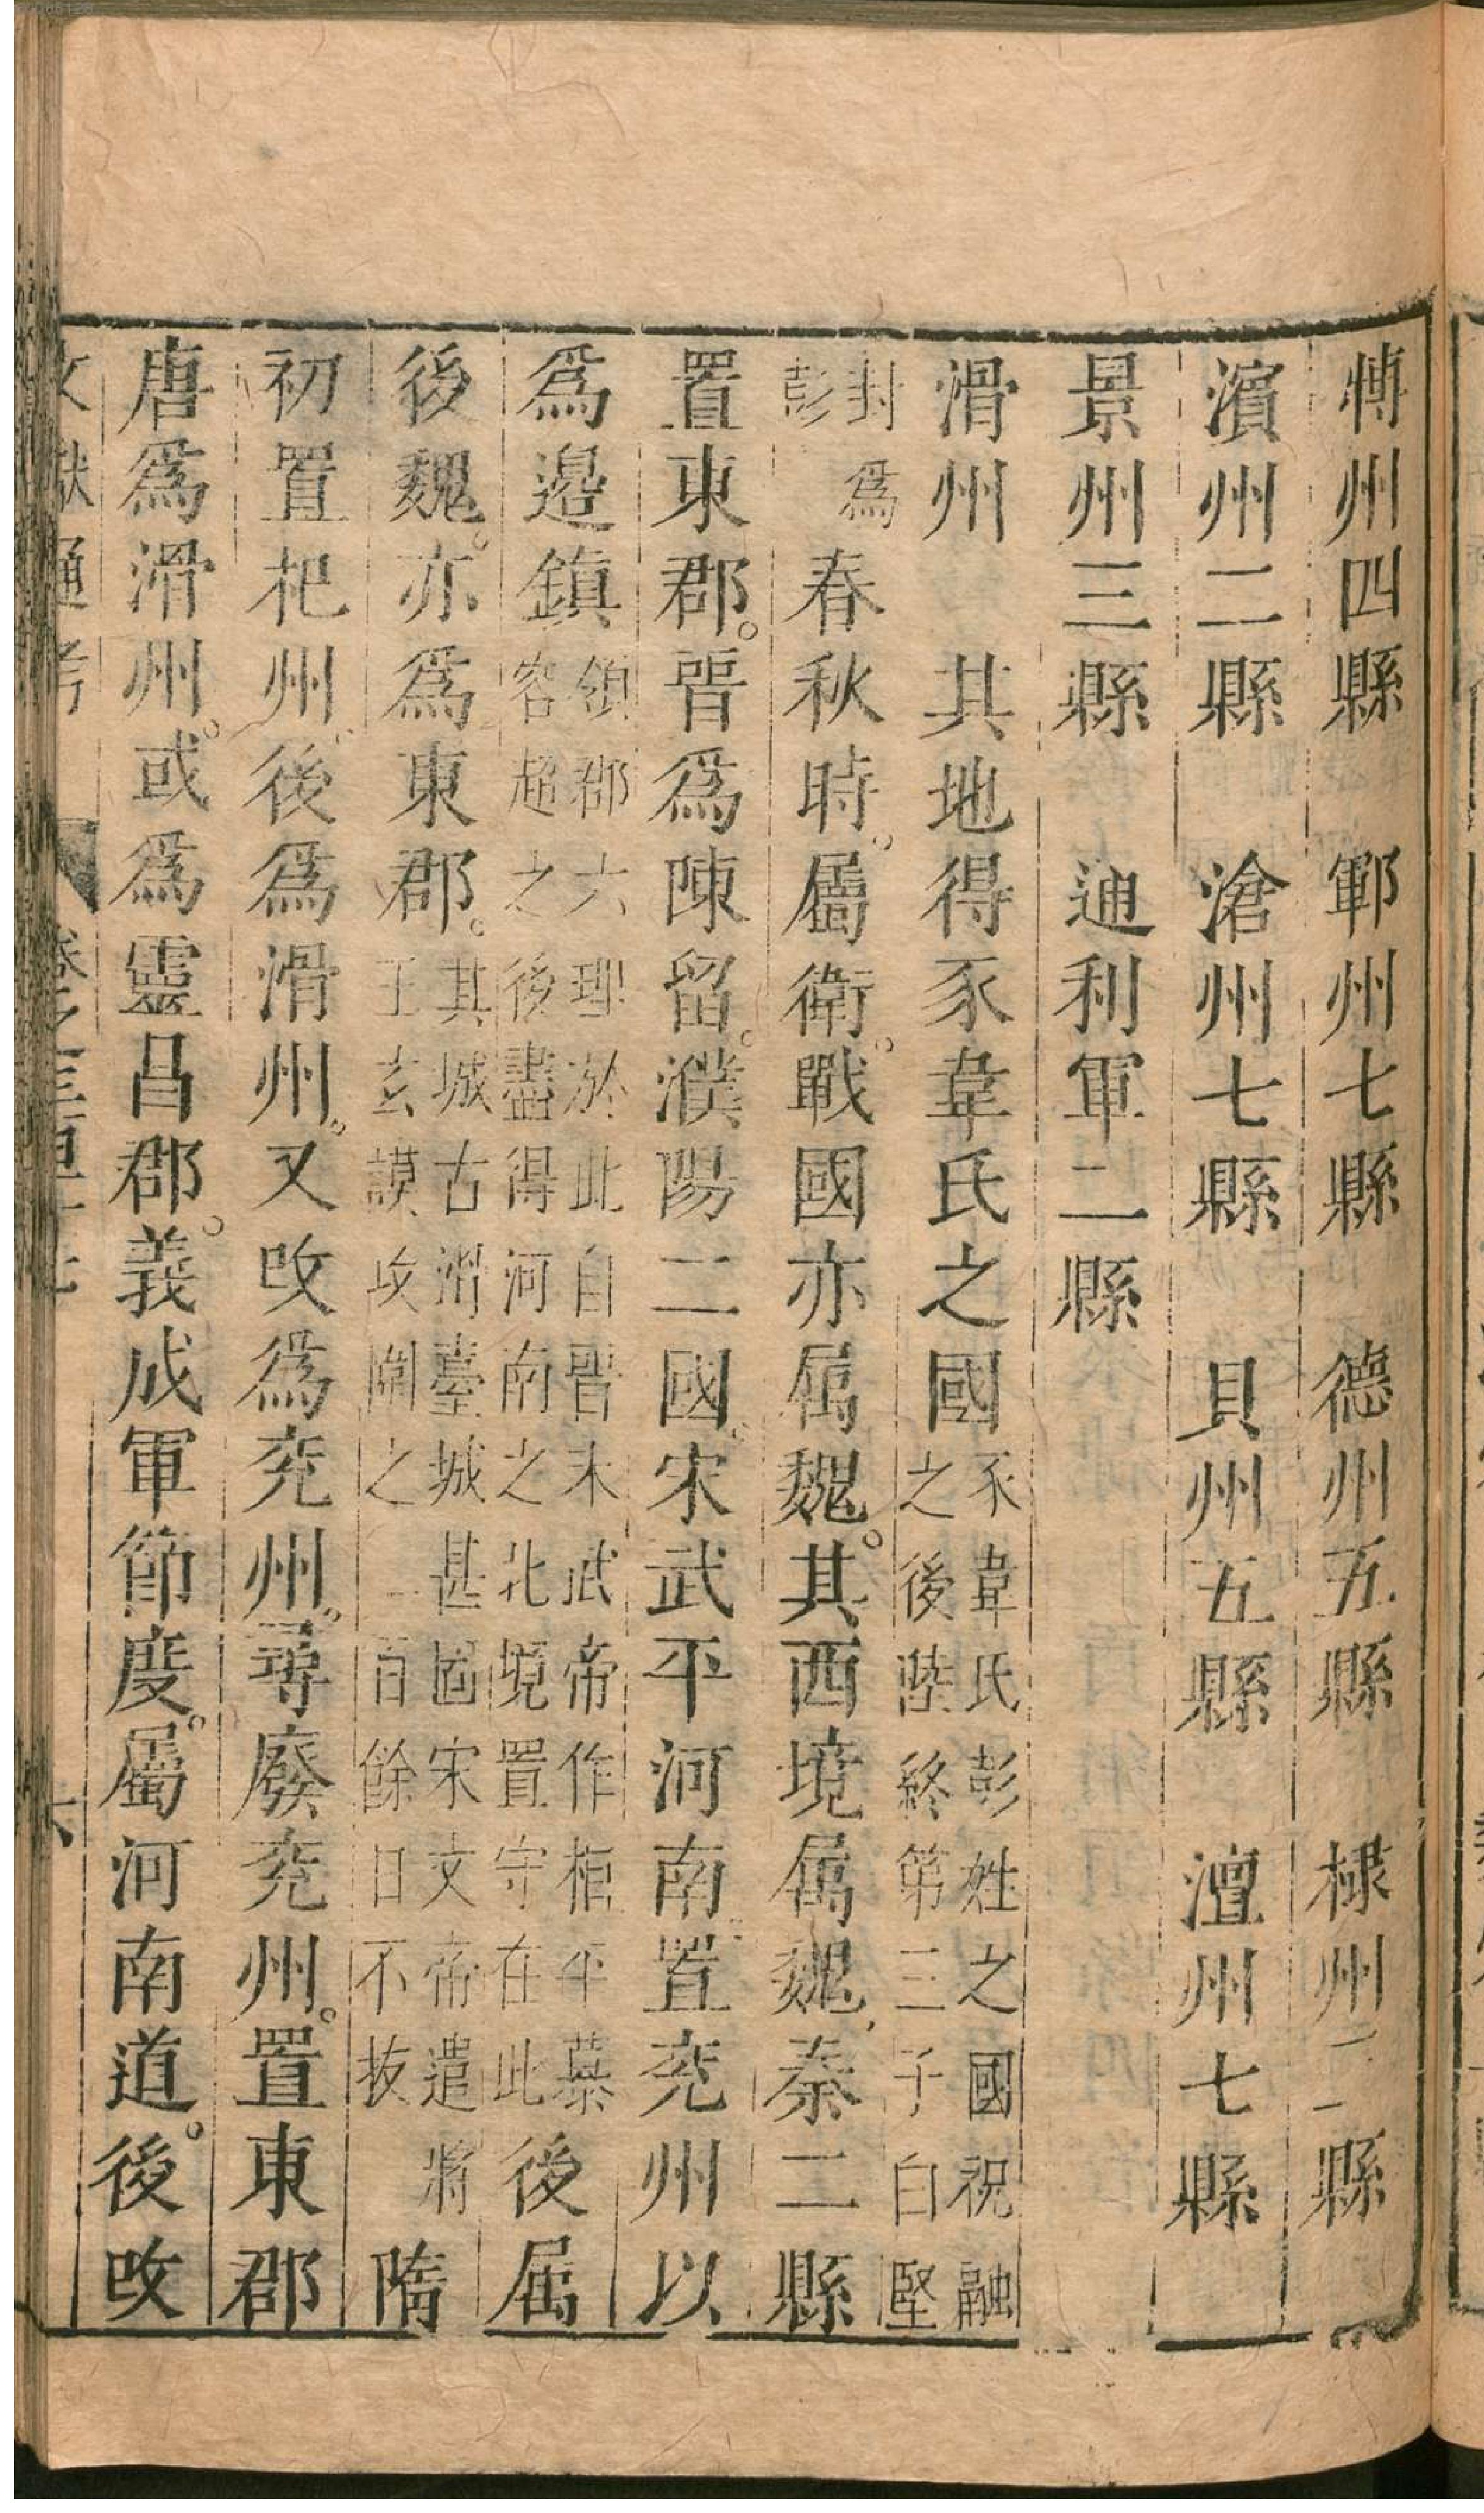 博州四縣　鄆州七縣　德州五縣　棣州二縣
濱州二縣　滄州七縣　貝州五縣　澶州七縣
景州三縣　通利軍二縣
滑州　其地得豕韋氏之國豕韋氏彭姓之國祝融之後陸終第三子曰堅
封爲彭春秋時屬衛戰國亦属魏其西境属魏秦二縣
置東郡晉爲陳留濮陽二國宋武平河南置兖州以
爲邉鎮領郡六理於此自晉末武帝作相平慕容超之後盡得河南之北境置守在此後属
後魏亦爲東郡其城古滑臺城甚固宋文帝遣將王玄謨攻圍之二百餘日不抜隋
初置杞州後爲滑州又改爲兖州尋廢兖州置東郡
唐爲滑州或爲靈昌郡義成軍節度屬河南道後改
文獻通考　卷之三百十七　六